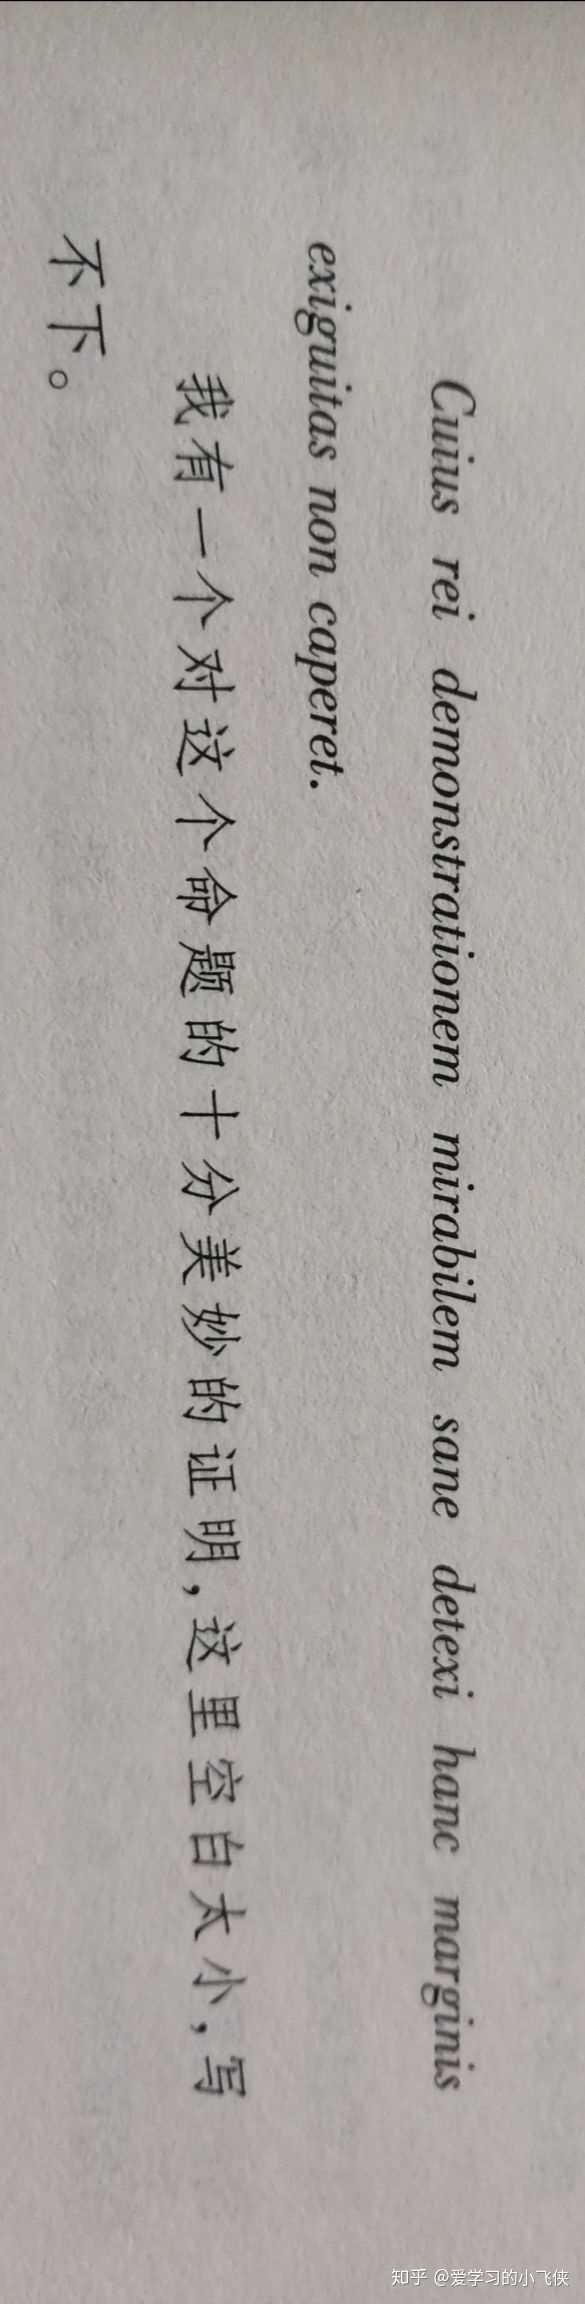 Cuius rei demonstrationem mirabilem sane detexi hanc marginis
exiguitas non caperet.
我有一个对这个命题的十分美妙的证明,这里空白太小,写
不下。
知乎 @爱学习的小飞侠